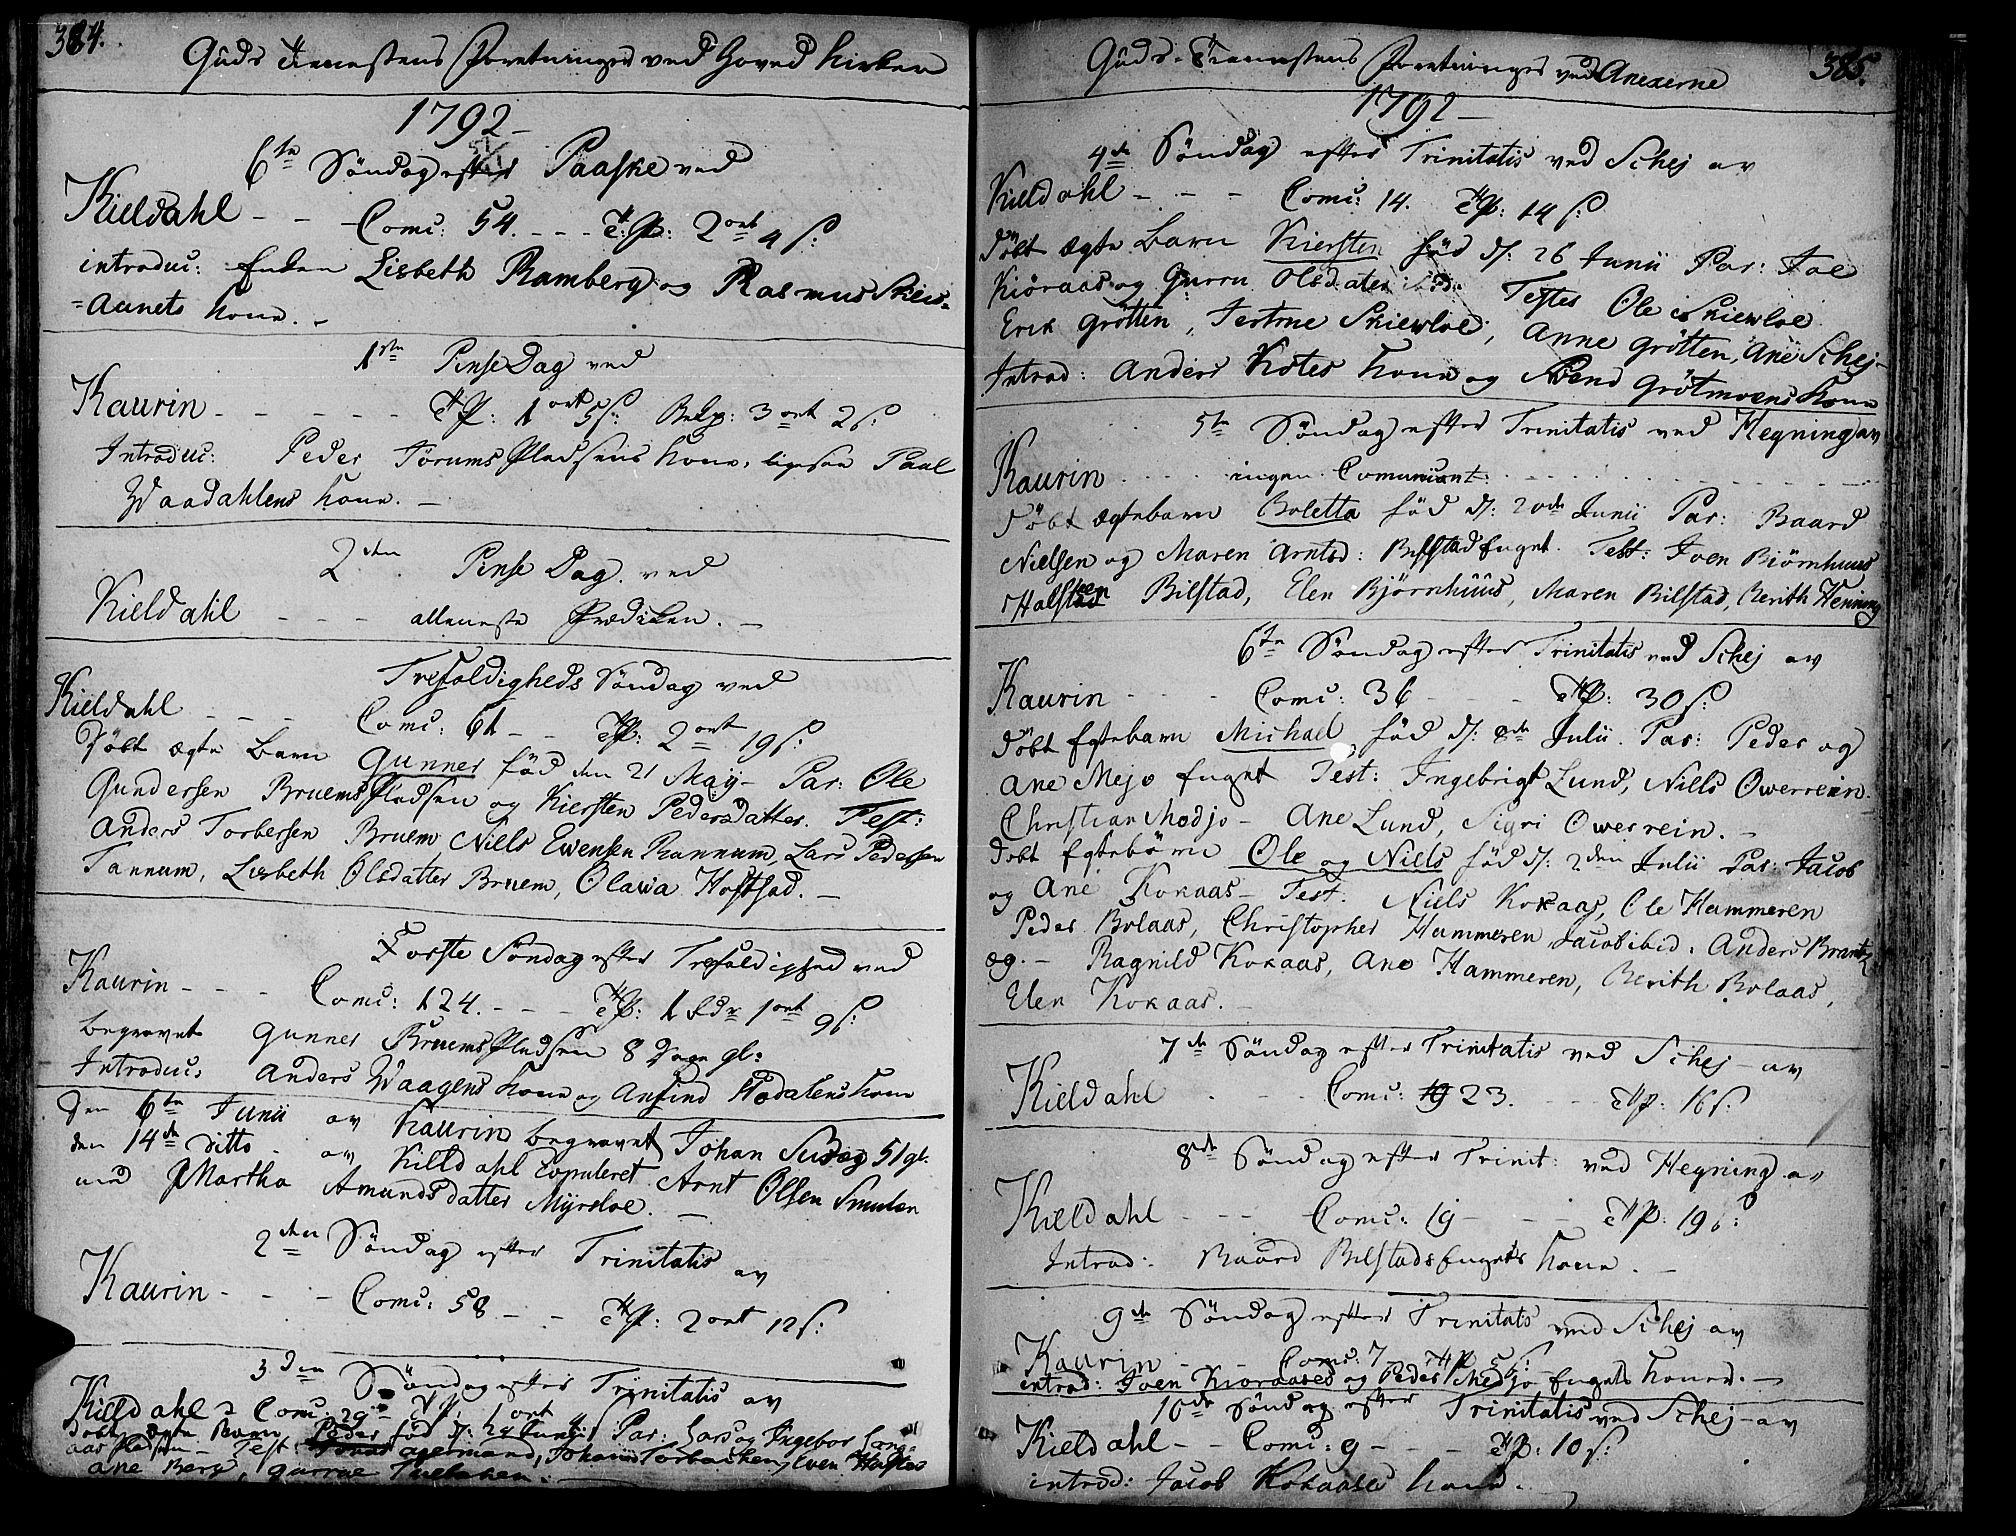 384.
Guds Tienestens Forretninger ved Hoved Kirken
1792
6te Søndag efter Paaske ved
Kieldahl - - Comu: 54. - - - T.P: 2 ort 4 s:
introduc: Enken Lisbeth Ramberg og Rasmus Skies-
=aunets Kone. -
1ste PinseDag ved
Kaurin - - - - - TP: 1 ort 5 s: 3 ort 2 s:
Introduc: Peder Førums Pladsens Kone, ligesaa Paal
Waadahlens Kone. -
2den Pinse Dag. ved
Kieldahl - - - alleneste Prædiken. -
Trefoldigheds Søndag ved
Kieldahl - - - Comu: 61 - - TP: 2 ort 19 s:
Døbt ægte Barn Gunner fød den 21 May - Par: Ole
Gundersen Bruems Pladsen og Kiersten Pedersdatter. Test:
Anders Torbersen Bruem Niels Ewensen Rannum, Lars Pedersen
Tannum, Lisbeth Olsdatter Bruem, Olawa Hoftsad. -
Første Søndag efter Trefoldighed ved
Kaurin - - - Comu: 124. - - - TP: 1 Rdr 1 ort 9 s:
begravet Gunner Bruems Pladsen 8 Dage gl:
Introduc: Anders Waagens Kone og Anfind Hodalens Kone
Den 6te Junii av Kaurin begravet Johan 51 gl.
den 14de ditto av Kieldahl Copuleret Arnt Olsen Smulan
med Martha Amundsdatter Myrsloe. -
2den Søndag efter Trinitatis av
Kaurin - - - Comu: 58 - - - TP: 2 ort 12 s:
3den Søndag efter Trinitatis av
Kieldahl - Comu: 29 - TP: 1 ort
Døbt ægte Barn Peder fød d: Junii Par: Lars og Ingebor
Test: Johan Torbachen, Ewen
Ane Berg, Gurrue
385.
Guds Tienestens Forretninger ved Anexerne
1792
4de Søndag efter Trinitatis ved Schej av
Kieldahl - - - Comu: 14. TP: 14 s:
Døbt ægte Barn Kiersten fød d: 26 Junii Par: Joe
Kiøraas og Gurru Olsdater Testes Ole Skiewloe
Erik Grøtten, Skiewloe, Anne Grøtten, Ane Schej-
Introd: Anders Kotes Kone og Svend Grøtmoens Kone
5te Søndag efter Trinitatis ved Hegning av
Kaurin - - - - ingen Comunicant - - - -
Døbt ægtebarn Boletta fød d: 20de Junii Par: Baard
Nielsen og Maren Arntsd: Bilstad Eignet. Test: Joen Biørnhuus
Halsten Bilstad, Elen Bjørnhuus, Maren Bilstad, Berith Hening
6te Søndag efter Trinitatis ved Schej av
Kaurin - - - Comu: 36 - - - TP: 30 s:
Døbt Egtebarn Michael fød d: Julii. Par: Peder og
Ane Mejo Eignet Test: Ingebrigt Lund, Niels Owerrein.
Christian Modjo - Ane Lund, Sigri Owerrein. -
Døbt Egtebørn Ole og Niels fød d: 2den Julii Par: Jacob
og Ane Kokaas - Test. Niels Kokaas, Ole Hammeren
Peder Bolaas, Christopher Hammeren Jacob ibid: Anders
og. - Ragnild Kokaas, Ane Hammeren, Berith Bolaas,
Elen Kokaas. -
7de Søndag efter Trinitatis ved Schej - av
Kieldahl - - - Comu: 23. - - TP: 16 s:
8de Søndag efter Trinit: ved Hegning av
Kieldahl - - - Comu: 19 - - - TP: 19 s:
Introd: Baard Bilstads Eignets Kone. -
9de Søndag efter Trinitatis ved Schej av
Kaurin - - Comu: 7 TP 5 s:
introd: Joen Kioraases og Peder Medjo Eignets Koner. -
10de Søndag efter Trinitatis ved Schej - av
Kieldahl - - Comu: 9 - - - TP: 10 s:
introd: Jacob Kokaases Kone. -